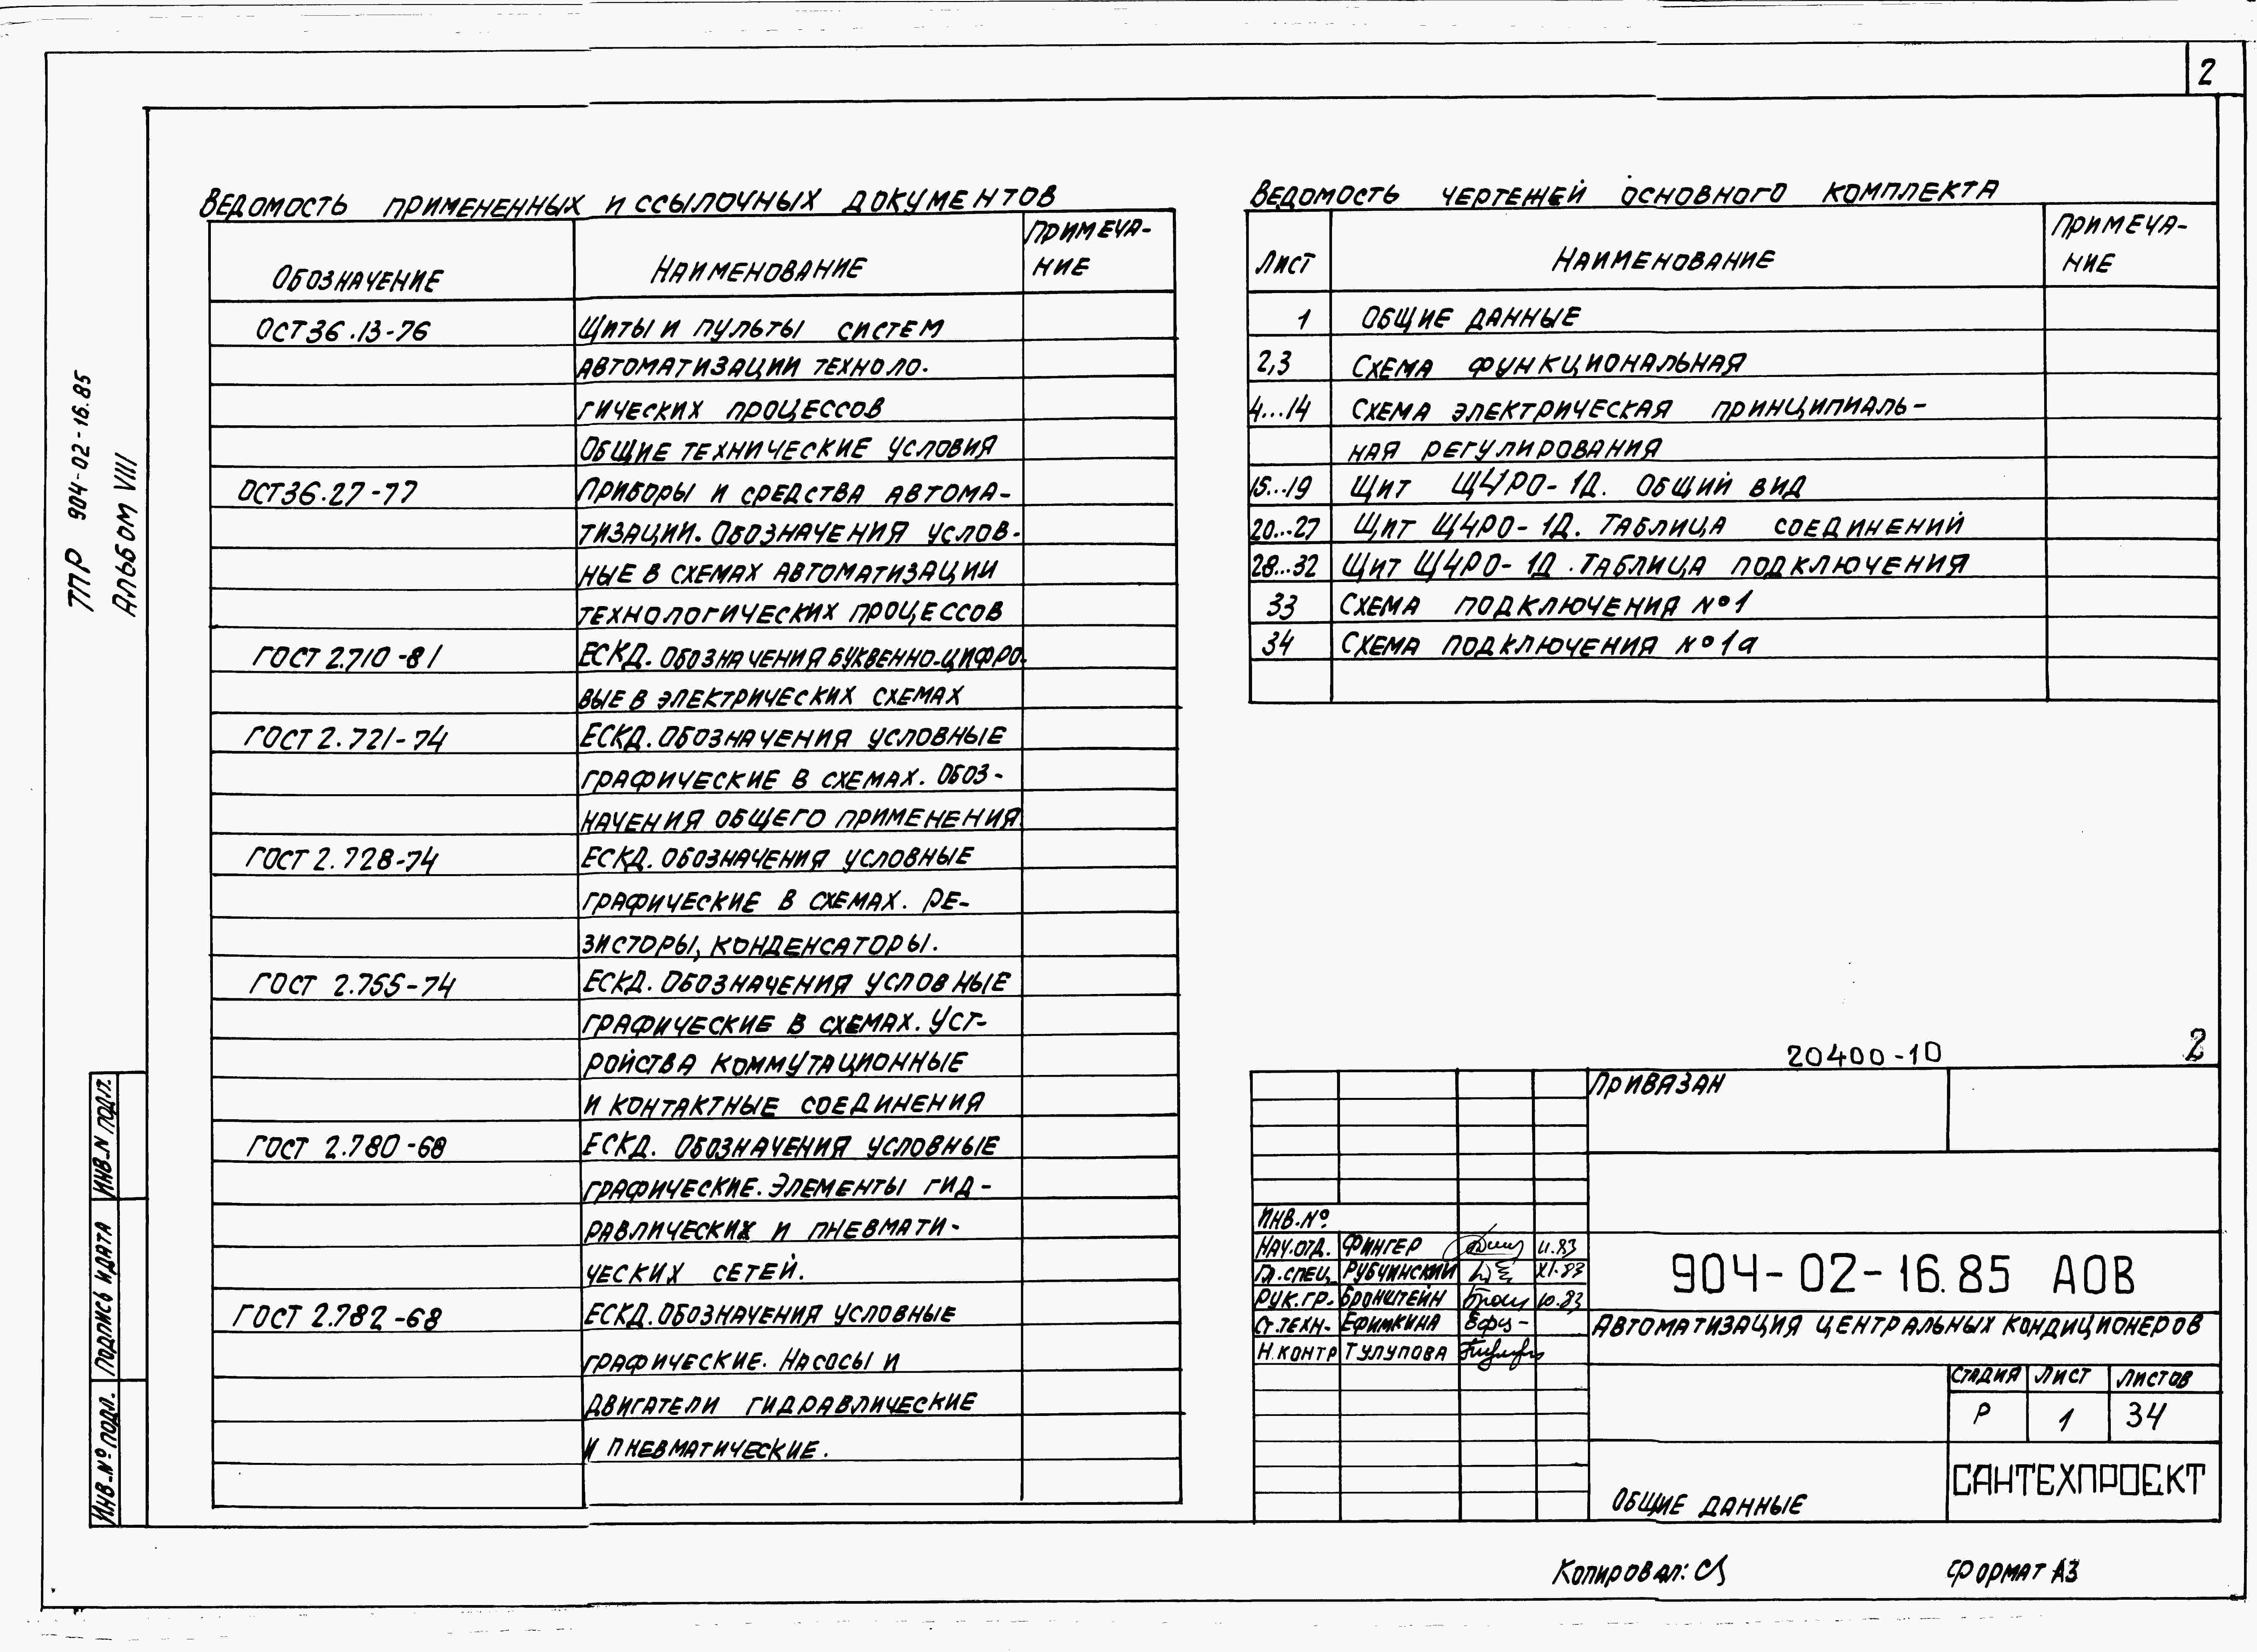 2
ТПР 904-02-16.85
Альбом VIII
Ведомость примененных и ссылочных документов
Обозначение
Наименование
Примеча-
ние
ОСТ36.13-76
Щиты и пульты систем
автоматизации техноло-
гических процессов
Общие технические условия
ОСТ36.27-77
Приборы и средства автома-
тизации. Обозначения услов-
ные в схемах автоматизации
технологических процессов
ГОСТ 2.710-81
ЕСКД. Обозначения буквенно-цифро-
вые в электрических схемах
ГОСТ 2.721-74
ЕСКД. Обозначения условные
графические в схемах. Обоз-
начения общего применения
ГОСТ 2.728-74
ЕСКД. Обозначения условные
графические в схемах. Ре-
зисторы, конденсаторы.
ГОСТ 2.755-74
ЕСКД. Обозначения условные
графические в схемах. Уст-
ройства коммутационные
и контактные соединения
ГОСТ 2.780-68
ЕСКД. Обозначения условные
графические. Элементы гид-
равлических и пневмати-
ческих сетей.
ГОСТ 2.782-68
ЕСКД. Обозначения условные
графические. Насосы и
двигатели гидравлические
и пневматические.
Ведомость чертежей основного комплекта
Лист
Наименование
Примеча-
ние
1 Общие данные
2,3 Схема функциональная
4...14 Схема электрическая принципиаль-
ная регулирования
15...19 Щит Щ4РО-1Д. Общий вид
20...27 Щит Щ4РО-1Д. Таблица соединений
28...32 Щит Щ4РО-1Д. Таблица подключения
33 Схема подключения №1
34 Схема подключения №1а
20400-10 2
Привязан
Инв.№
Нач.отд. Фингер 11.83
Гл.спец. Рубчинский XI.83
Рук.гр. Бронштейн 10.83
Ст.техн. Ефимкина
Н.контр Тулупова
904-02-16.85 АОВ
Автоматизация центральных кондиционеров
Стадия Лист Листов
Р 1 34
Общие данные
САНТЕХПРОЕКТ
Инв.N подл.
Подпись и дата
Инв.№ подл.
Копировал:
Формат А3